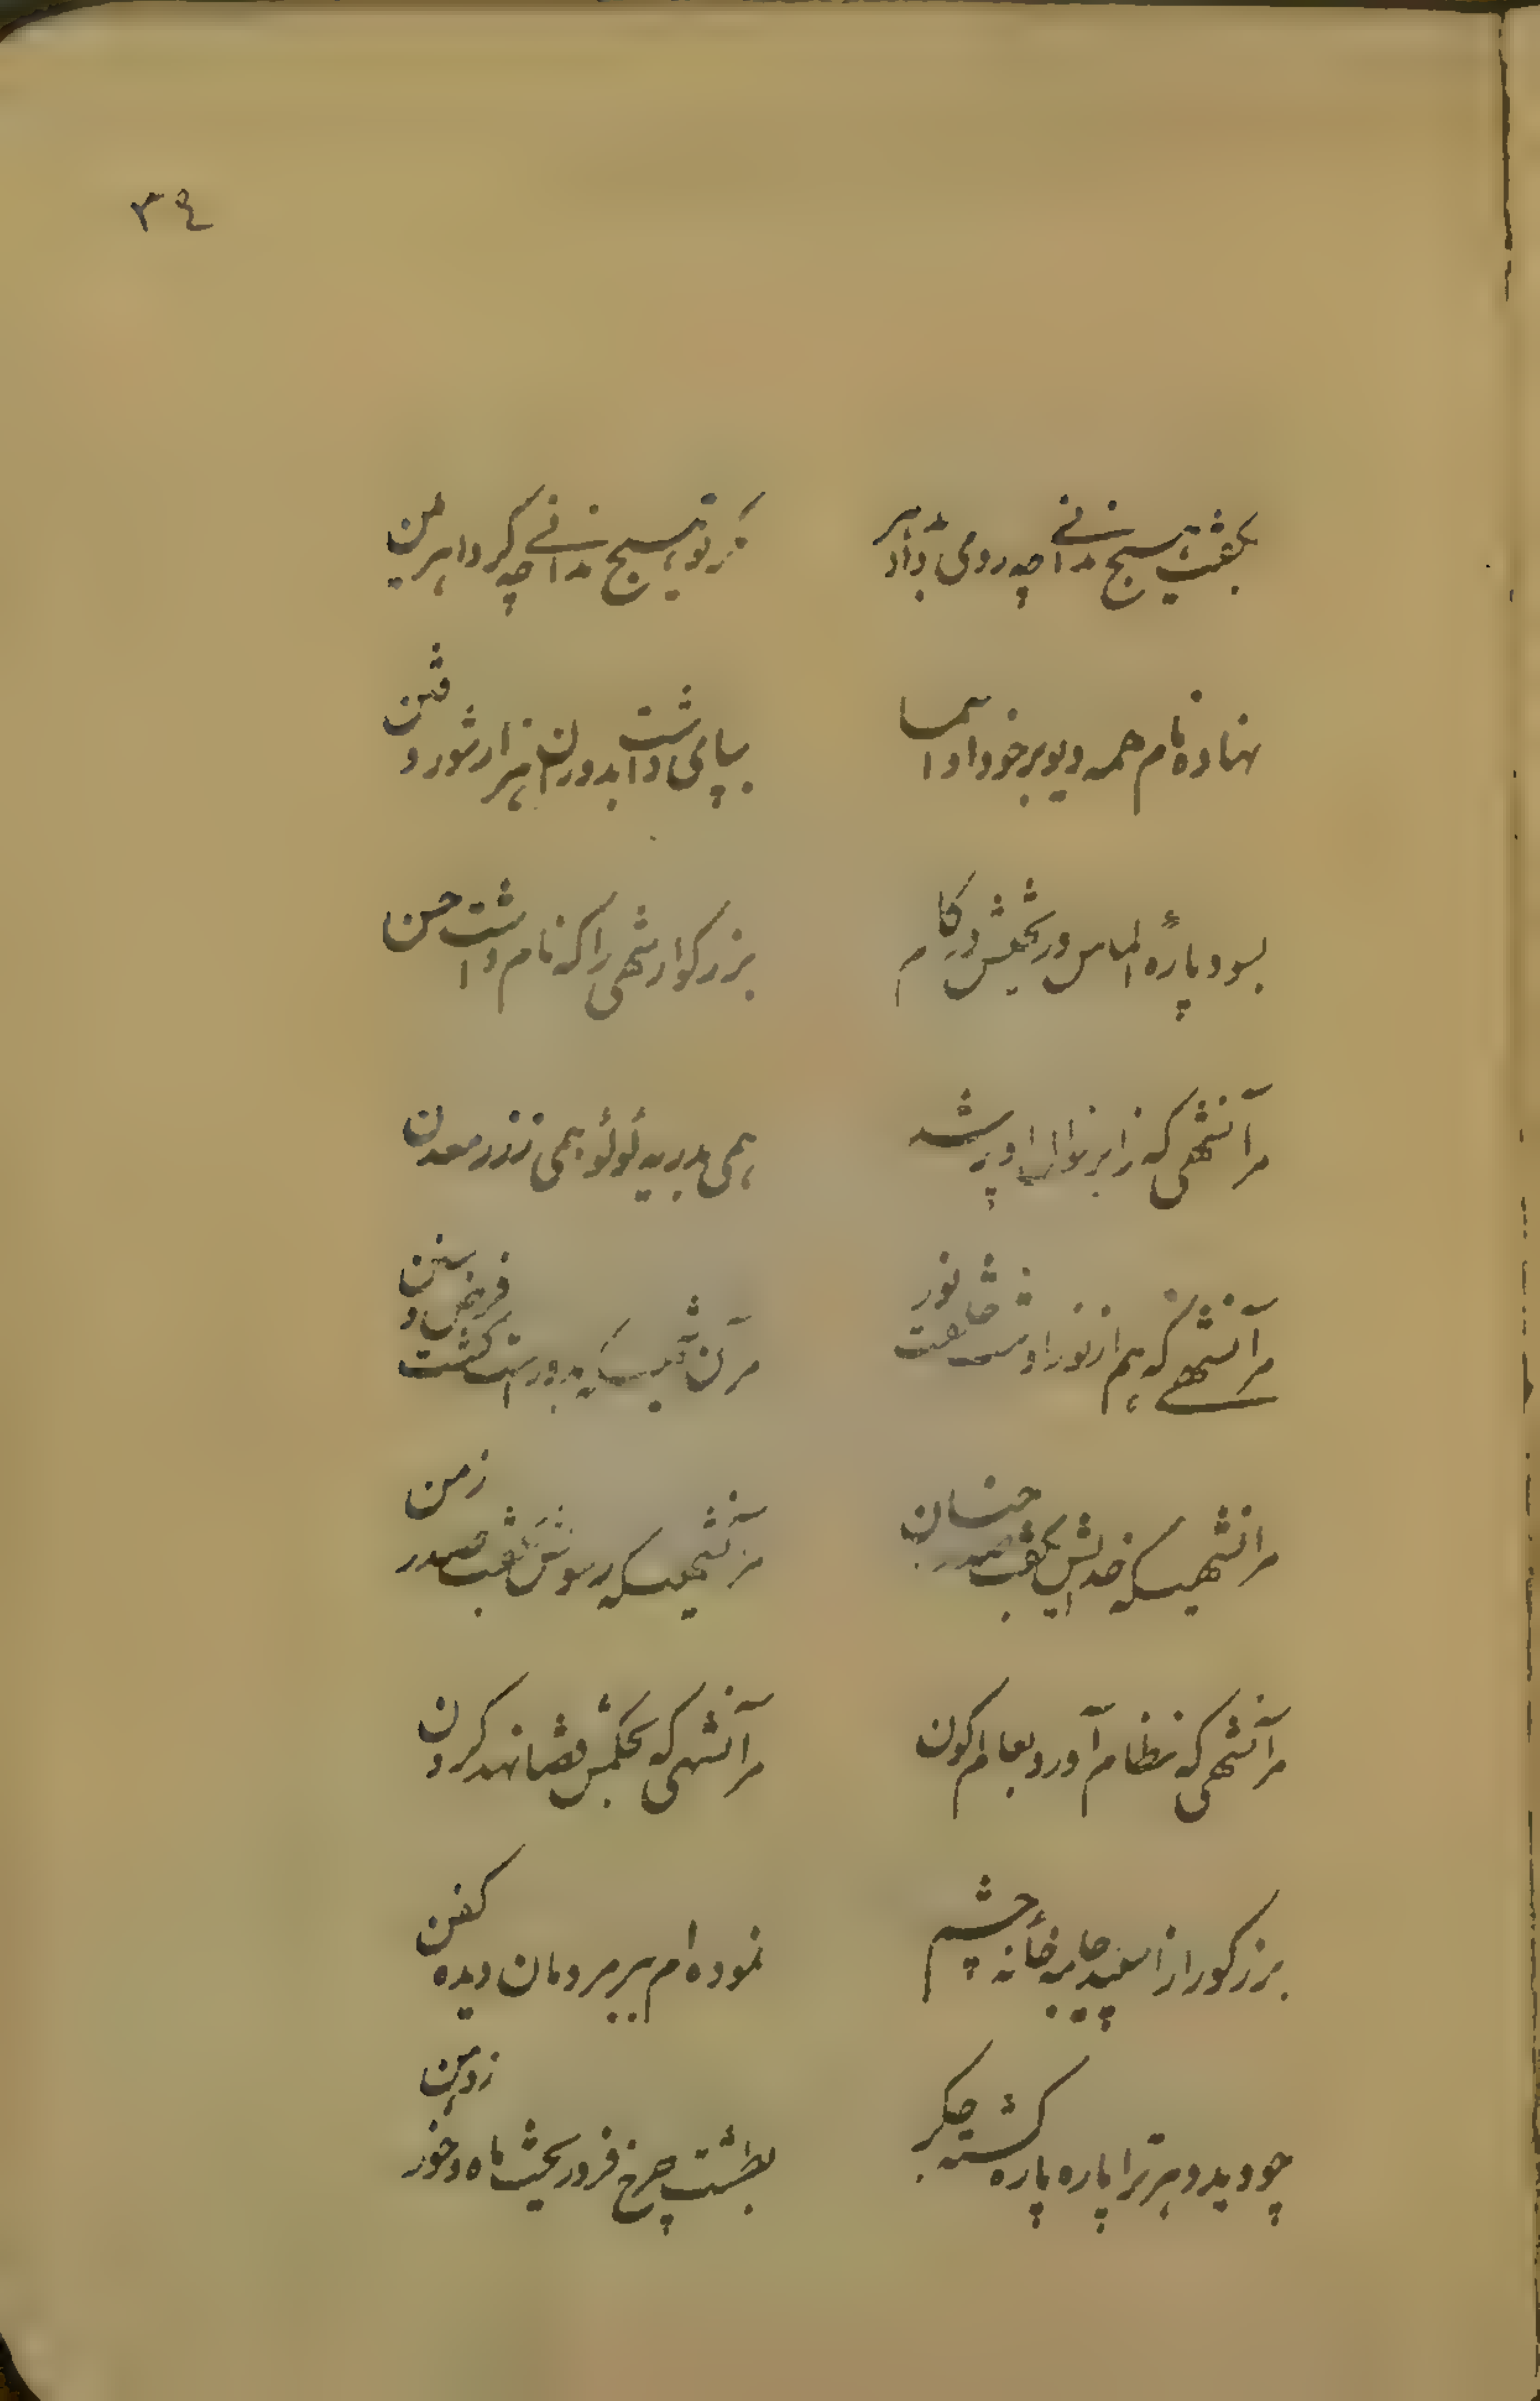 ۳٤
بگفت هیچ ندانی چه رومی داد
مگر تو هیچ ندانی چه کرد اهریمن
نهاده نام همه دیو بر خود او اسما
بپای داشت بدوران هزار شور و فتن
بسود پارهٔ الماس و ریختش در کام
بزرگوار شهی را که نام داشت حسن
مر آنشهی که ز ابر نوال او پر شد
همی بدریه لؤلؤ همی ز زر معدن
مر آنشهی که هم از نور اوست خلقت نور
مر آن که درست گشت فرض و سنن
مر آنشهیکه خدایش بگفت صدر جنان
مر آنشهیکه رسولش بگفت صدر زمن
مر آنشهی که نظام آورد بعام اکون
مر آنشهی که بحکمش قضا نهد گردن
بزرگوارا از اسپید جامهٔ خانه چشم
نموده‌ام ببر مردمان دیده کفن
چو دید دهر ترا پاره پاره گشته جگر
بطشت چرخ فرو ریخت ماه و خور ز دهن